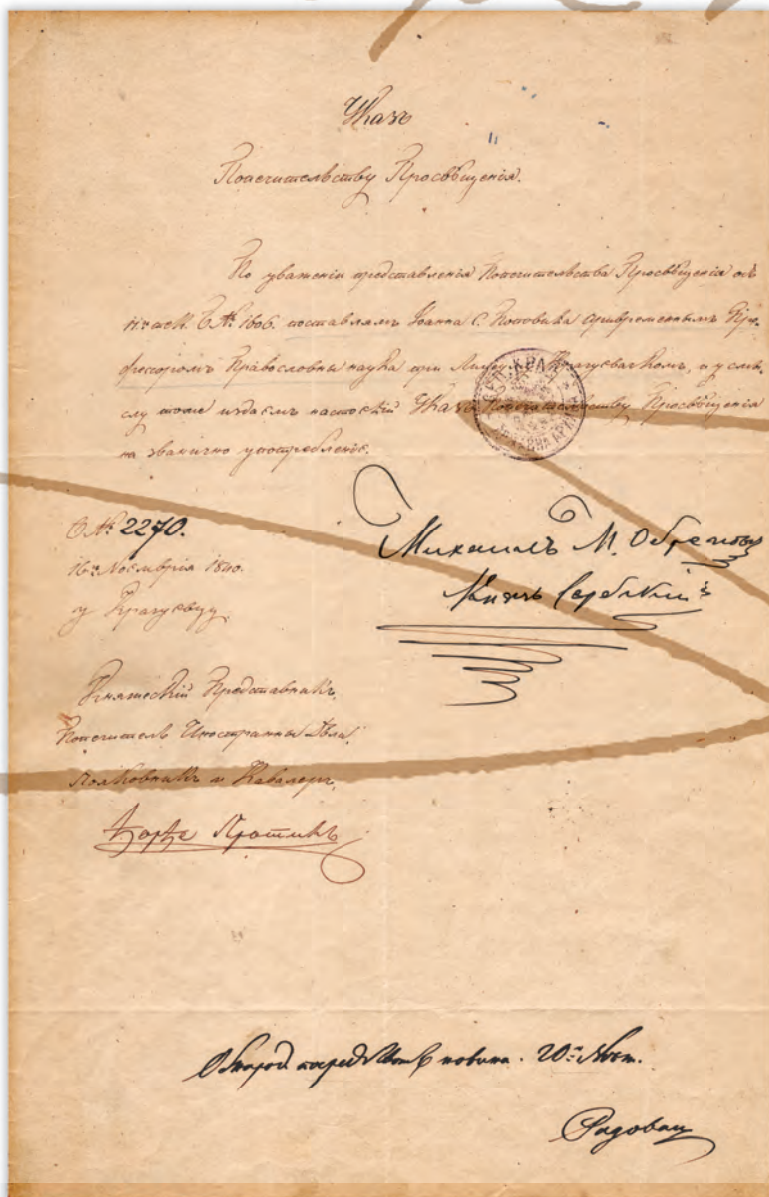 Указъ
Попечительству Просвѣщенія.
По уваженію представленія Попечительства Просвѣщенія одъ
№ 1606. поставлямъ Іоанна С. Поповића привременнымъ Про-
фесоромъ Правословны наука при Лицеу Крагуевачкомъ, и у смы-
слу томе издаемъ настоећій Указъ Попечительству Просвѣщенія
на званично употребленіе.
№ 2270.
16го Ноемврія 1840.
у Крагуевцу
Михаилъ М. Обреновић
Князь Сербскій
Княжескій Представникъ,
Попечитель Иностранны Дѣла,
Полковникъ и Кавалеръ,
Ђорђе Протићъ
новина. 20
Радовац